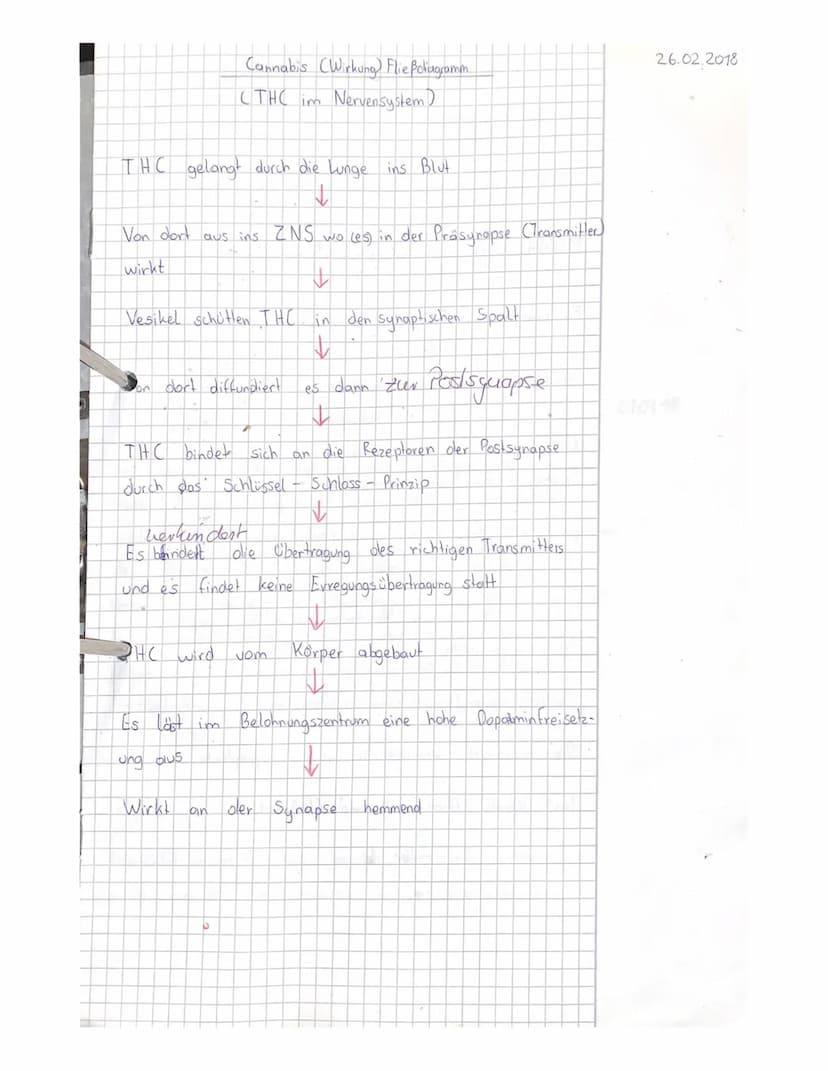 26.02.2018
Cannabis (Wirkung) Fließdiagramm
(THC im Nervensystem)
THC gelangt durch die Lunge ins Blut
↓
Von dort aus ins ZNS wo (es) in der Präsynapse (Transmitter)
wirkt
↓
Vesikel schütten THC in den synaptischen Spalt
↓
Von dort diffundiert es dann zur Postsynapse
↓
THC bindet sich an die Rezeptoren der Postsynapse
durch das Schlüssel - Schloss - Prinzip
↓
verhindert
Es die Übertragung des richtigen Transmitters
und es findet keine Erregungsübertragung statt
↓
THC wird vom Körper abgebaut
↓
Es löst im Belohnungszentrum eine hohe Dopaminfreisetz-
ung aus
↓
Wirkt an der Synapse hemmend